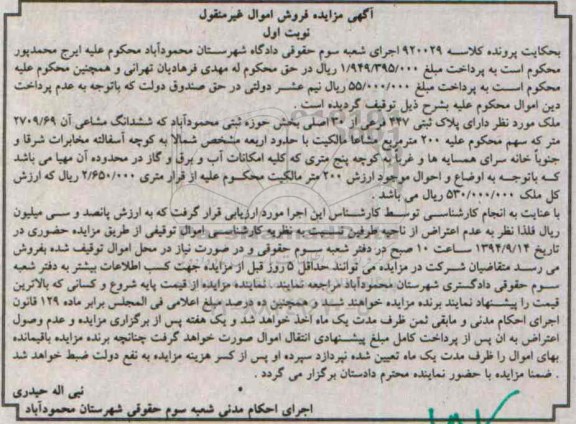 آگهی مزایده فروش اموال غیرمنقول
نوبت اول
بحکایت پرونده کلاسه ۹۲۰۰۲۹ اجرای شعبه سوم حقوقی دادگاه شهرستان محمودآباد محکوم علیه ایرج محمدپور
محکوم است به پرداخت مبلغ ۱/۹۴۹/۳۹۵/۰۰۰ ریال در حق محکوم له مهدی فرهادیان تهرانی و همچنین محکوم علیه
محکوم است به پرداخت مبلغ ۵۵/۰۰۰/۰۰۰ ریال نیم عشر دولتی در حق صندوق دولت که باتوجه به عدم پرداخت
دین اموال محکوم علیه بشرح ذیل توقیف گردیده است .
ملک مورد نظر دارای پلاک ثبتی ۴۴۷ فرعی از ۳۰ اصلی بخش حوزه ثبتی محمودآباد که ششدانگ مشاعی آن ۲۷۰۹/۶۹
متر که سهم محکوم علیه ۲۰۰ مترمربع مشاعا مالکیت با حدود اربعه مشخص شمالا به کوچه آسفالته مخابرات شرقا و
جنوباً خانه سرای همسایه ها و غربا به کوچه پنج متری که کلیه امکانات آب و برق و گاز در محدوده آن مهیا می باشد
که باتوجه به اوضاع و احوال موجود ارزش ۲۰۰ متر مالکیت محکوم علیه از قرار متری ۲/۶۵۰/۰۰۰ ریال که ارزش
کل ملک ۵۳۰/۰۰۰/۰۰۰ ریال می باشد .
با عنایت به انجام کارشناسی توسط کارشناس این اجرا مورد ارزیابی قرار گرفت که به ارزش پانصد و سی میلیون
ریال فلذا نظر به عدم اعتراض از ناحیه طرفین نسبت به نظریه کارشناسی اموال توقیفی از طریق مزایده حضوری در
تاریخ ۱۳۹۴/۹/۱۴ ساعت ۱۰ صبح در دفتر شعبه سوم حقوقی و در صورت نیاز در محل اموال توقیف شده بفروش
می رسد متقاضیان شرکت در مزایده می توانند حداقل ۵ روز قبل از مزایده جهت کسب اطلاعات بیشتر به دفتر شعبه
سوم حقوقی دادگستری شهرستان محمودآباد مراجعه نمایند . نماینده مزایده از قیمت پایه شروع و کسانی که بالاترین
قیمت را پیشنهاد نمایند برنده مزایده خواهند شد و همچنین ده درصد مبلغ اعلامی فی المجلس برابر ماده ۱۲۹ قانون
اجرای احکام مدنی و مابقی ثمن ظرف مدت یک ماه اخذ خواهد شد و یک هفته پس از برگزاری مزایده و عدم وصول
اعتراض به ان پس از پرداخت کامل مبلغ پیشنهادی انتقال اموال صورت خواهد گرفت چنانچه برنده مزایده باقیمانده
بهای اموال را ظرف مدت یک ماه تعیین شده نپردازد سپرده او پس از کسر هزینه مزایده به نفع دولت ضبط خواهد شد
. ضمنا مزایده با حضور نماینده محترم دادستان برگزار می گردد .
نبی اله حیدری
اجرای احکام مدنی شعبه سوم حقوقی شهرستان محمودآباد